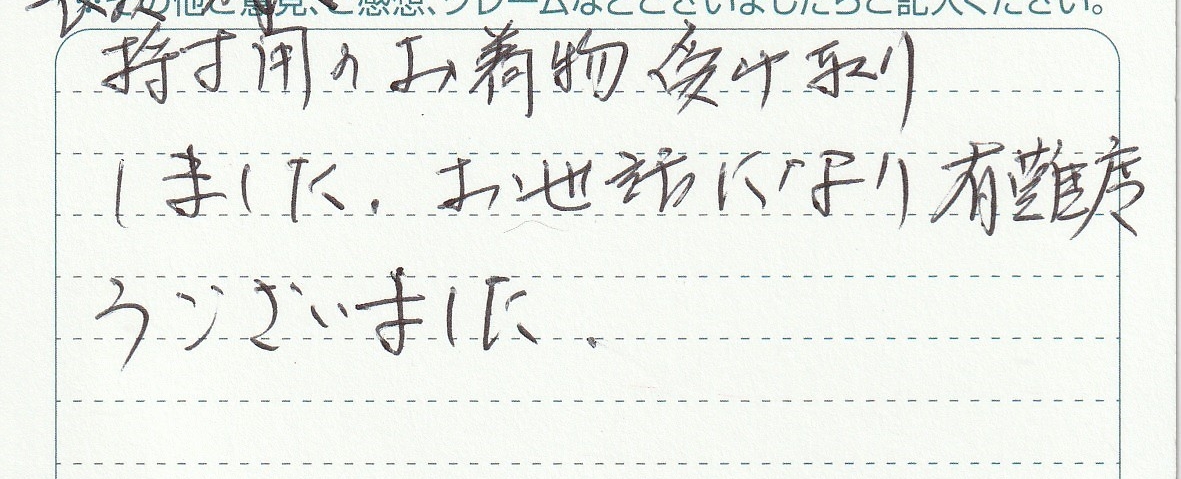 の他ご意見、ご感想、クレームなどございましたらご記入ください。
持す用のお着物受け取り
しました。お世話になり有難度
うございました。